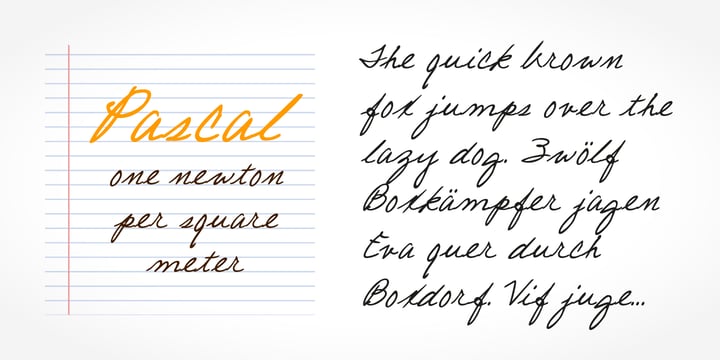 Pascal
one newton
per square
meter
The quick brown
fox jumps over the
lazy dog. Zwölf
Boxkämpfer jagen
Eva quer durch
Boxdorf. Vif juge...